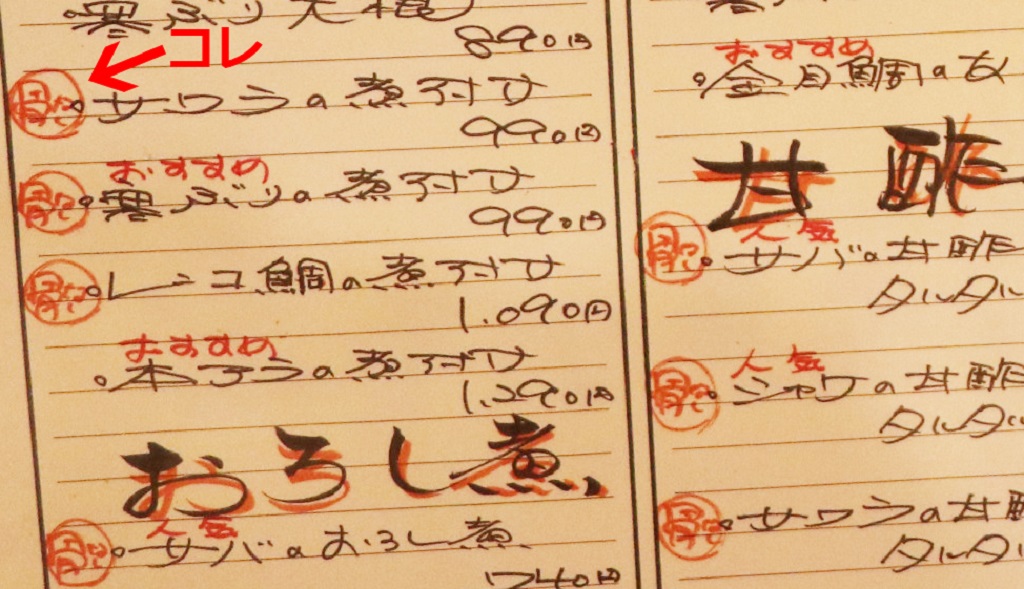 寒ぶり大根
890円
コレ
骨なし サワラの煮付け
990円
おすすめ
骨なし 寒ぶりの煮付け
990円
骨なし レンコ鯛の煮付け
1.090円
おすすめ
本タラの煮付け
1.290円
おろし煮
人気
骨なし サバのおろし煮
740円
おすすめ
金目鯛の
甘酢
人気
骨なし サバの甘酢
タルタル
人気
骨なし シャケの甘酢
タルタル
骨なし サワラの甘酢
タルタル